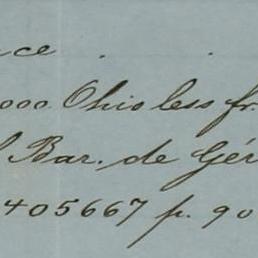 ce . .
000 Ohio less fr.
l Bar. de Gér
405667 p. 90